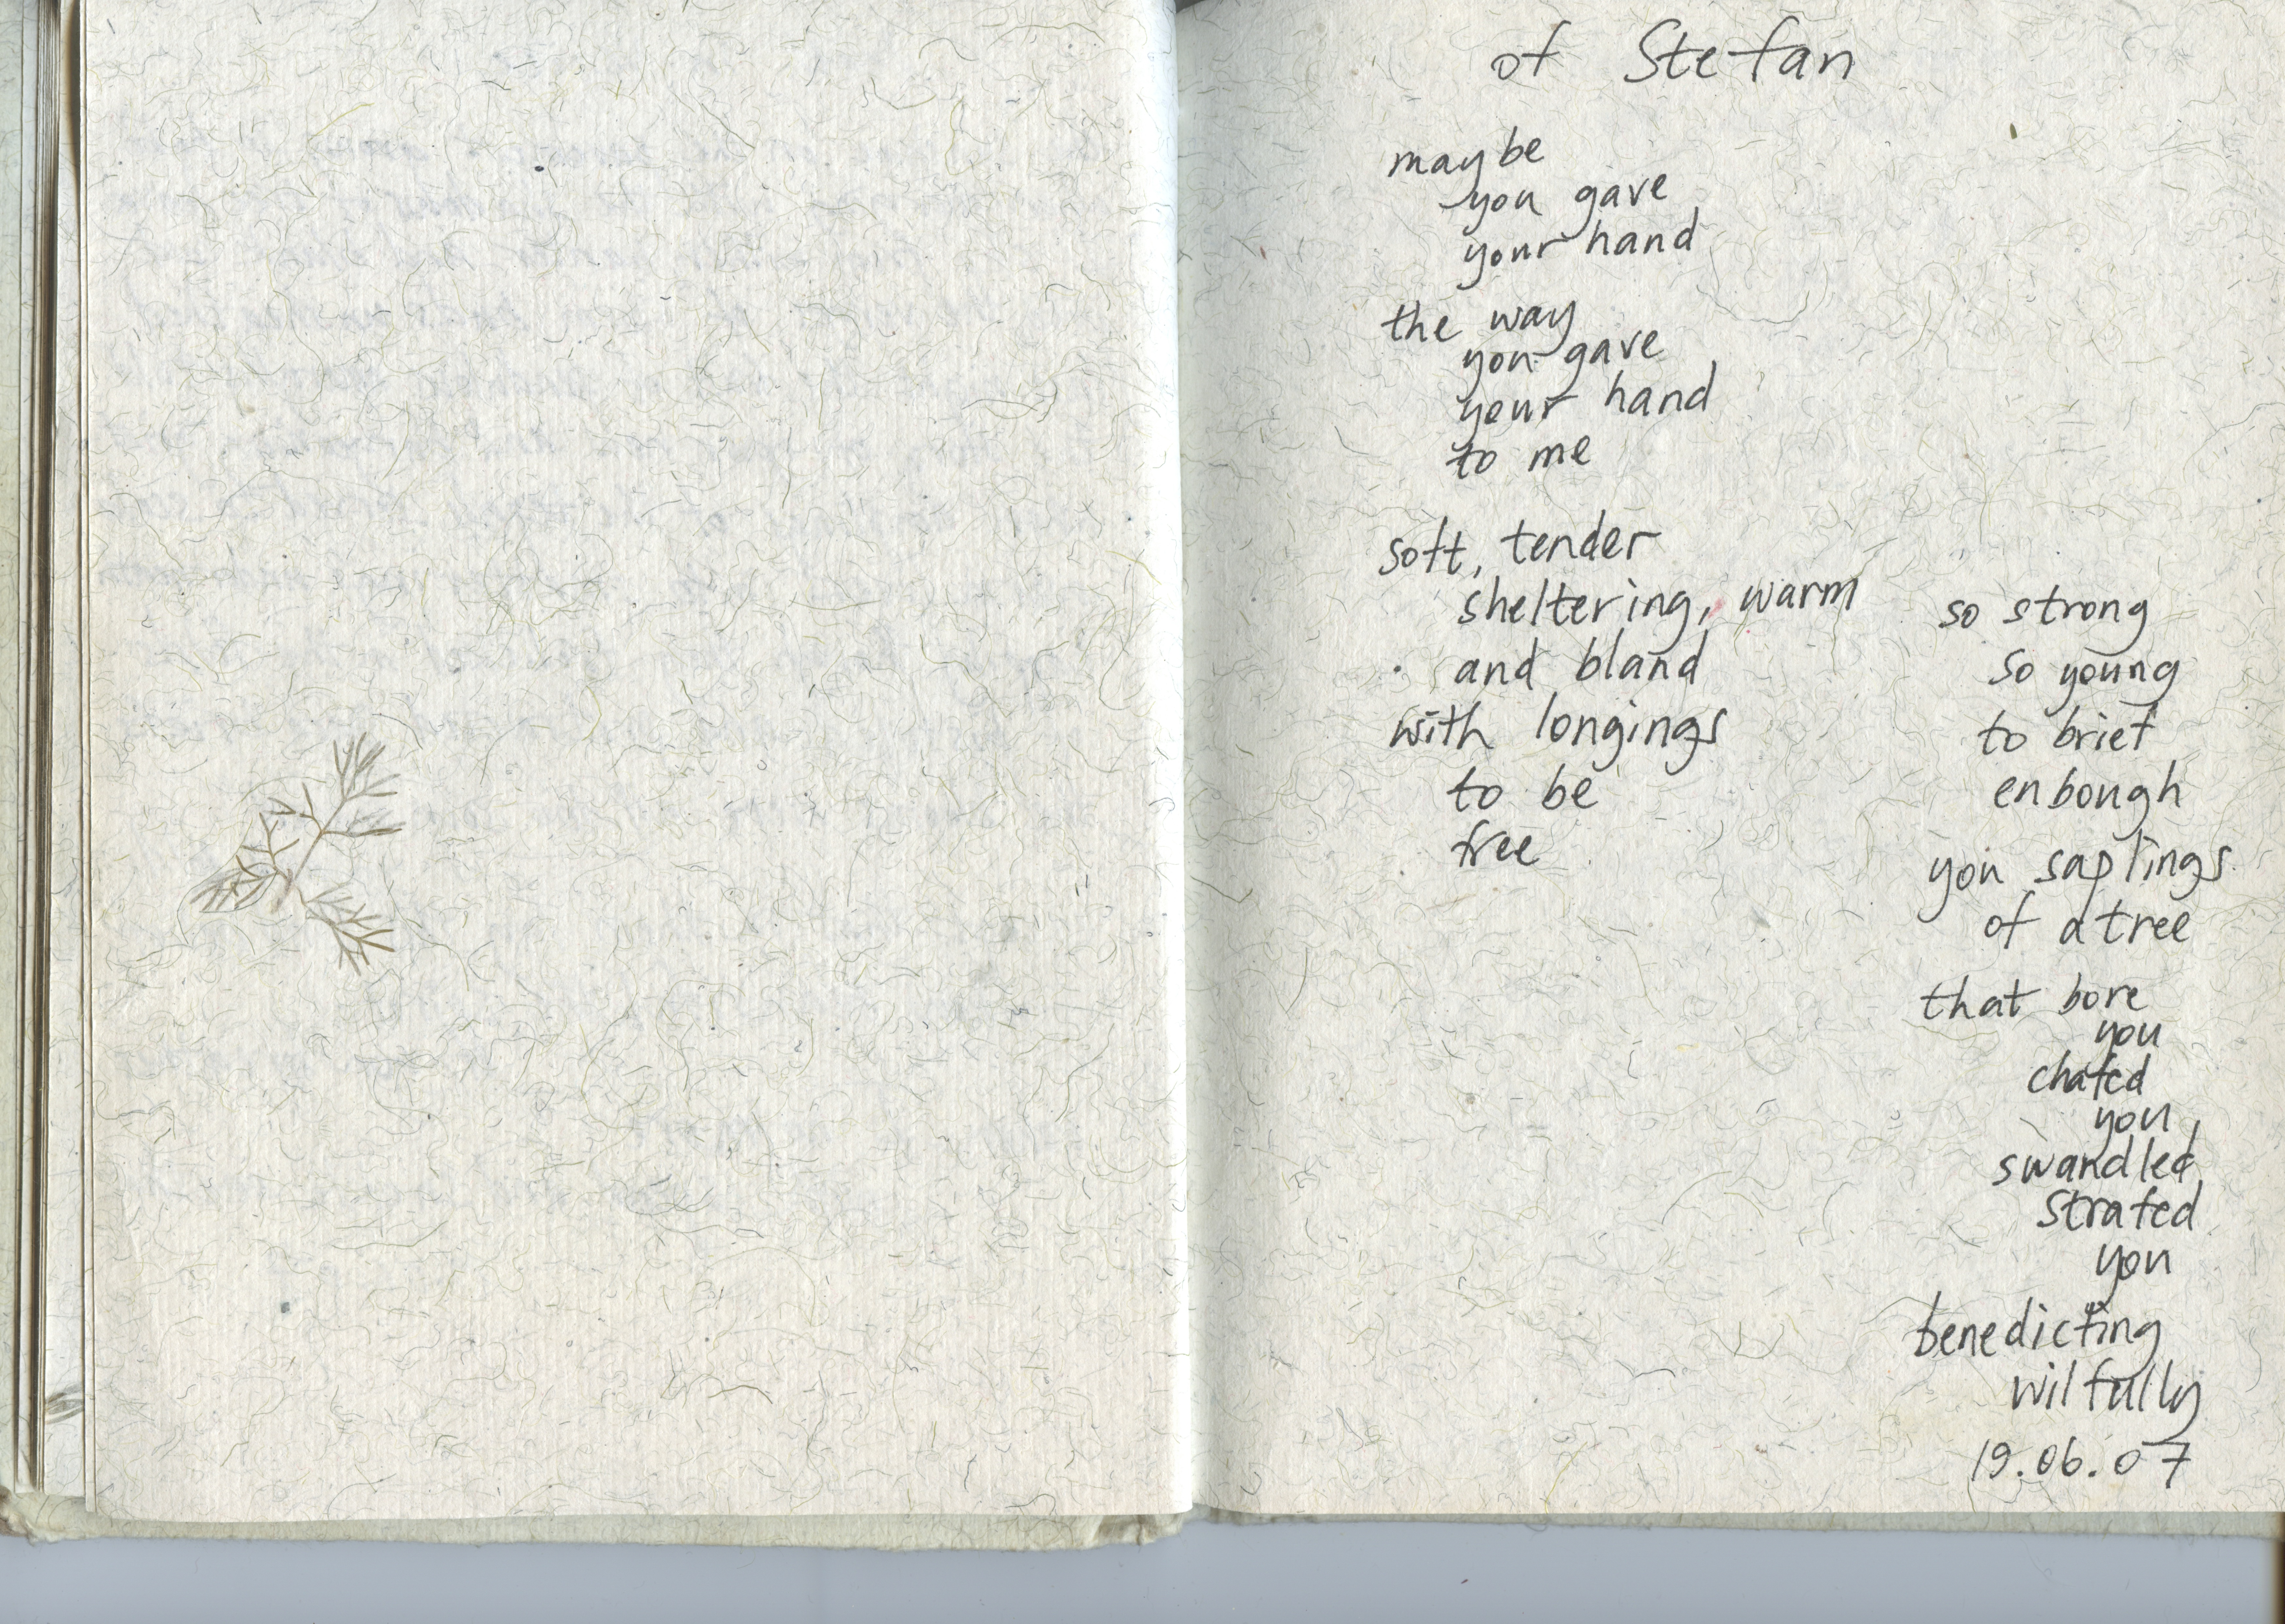 of Stefan
maybe
you gave
your hand
the way
you gave
your hand
to me
soft, tender
sheltering, warm
and bland
with longings
to be
free
so strong
so young
to brief
enbough
you saplings
of a tree
that bore
you
chafed
you,
swandled
strafed
you
benedicting
wilfully
19.06.07